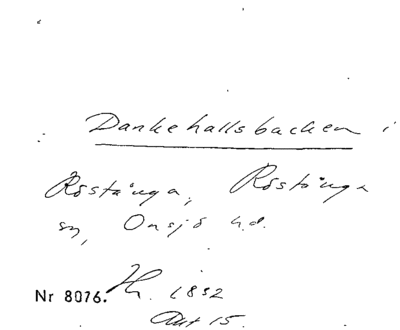 Dankehallsbacken i
Röstånga, Röstånga
sn, Onsjö hd.
Nr 8076. 1852
15.